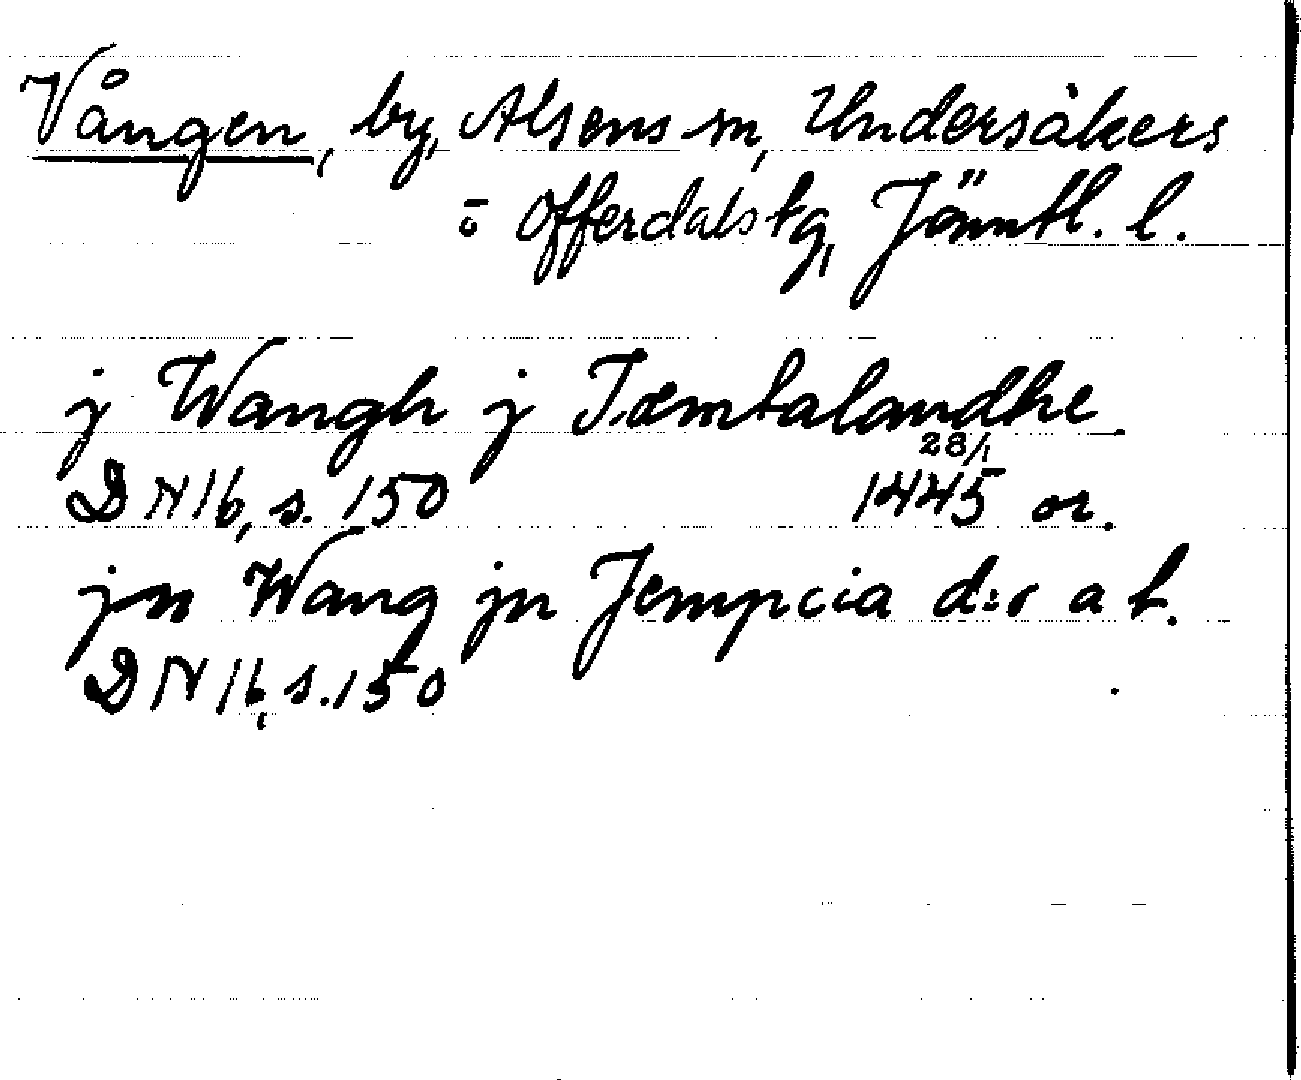 Vången, by, Alsens sn, Undersåkers
o Offerdals tg, Jämtl. l.
j Wangh j Jæmtalandhe
28/1
DN 16, s. 150 1445 or.
jn Wang jn Jempcia d:o a t.
DN 16, s. 150